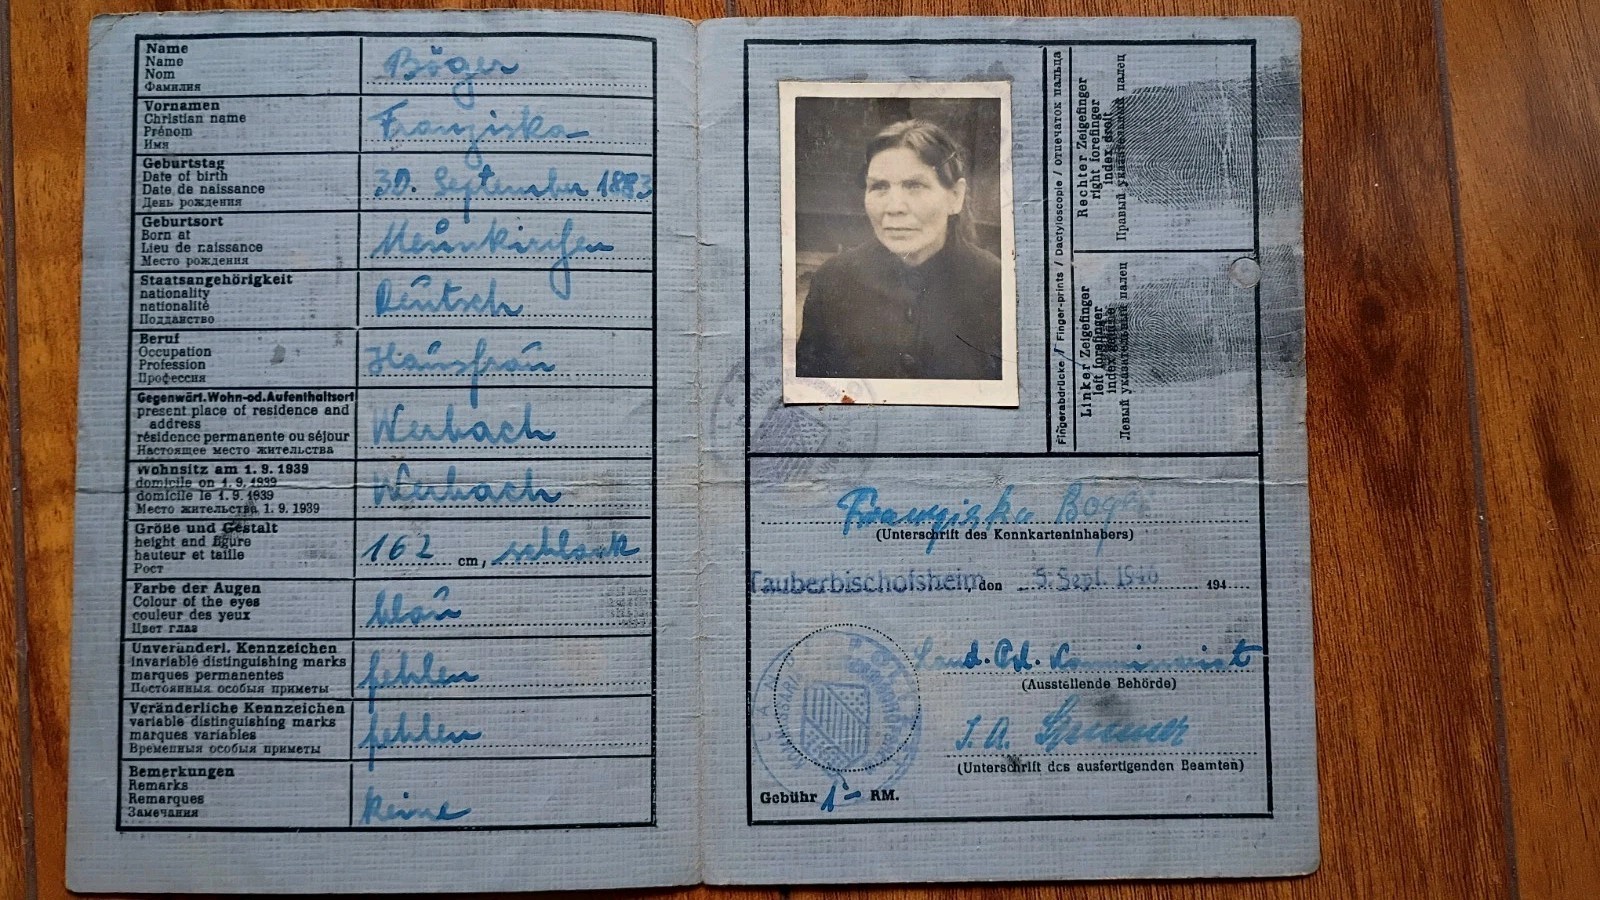 Name
Name
Nom
Фамилия
Böger
Vornamen
Christian name
Prénom
Имя
Franziska
Geburtstag
Date of birth
Date de naissance
День рождения
30. September 1883
Geburtsort
Born at
Lieu de naissance
Место рождения
Staatsangehörigkeit
nationality
nationalité
Подданство
Deutsch
Beruf
Occupation
Profession
Профессия
Hausfrau
Gegenwärt. Wohn-od. Aufenthaltsort
present place of residence and
address
résidence permanente ou séjour
Настоящее место жительства
Werbach
Wohnsitz am 1. 9. 1939
domicile on 1. 9. 1939
domicile le 1. 9. 1939
Место жительства 1. 9. 1939
Werbach
Größe und Gestalt
height and figure
hauteur et taille
Рост
162 cm, schlank
Farbe der Augen
Colour of the eyes
couleur des yeux
Цвет глаз
blau
Unveränderl. Kennzeichen
invariable distinguishing marks
marques permanentes
Постоянныя особыя приметы
fehlen
Veränderliche Kennzeichen
variable distinguishing marks
marques variables
Временныя особыя приметы
fehlen
Bemerkungen
Remarks
Remarques
Замечания
keine
Fingerabdrücke / Finger-prints / Dactyloscopie / отпечаток пальца
Rechter Zeigefinger
right forefinger
index droit
Правый указательный палец
Linker Zeigefinger
left forefinger
index gauche
Левый указательный палец
Franziska Böger
(Unterschrift des Kennkarteninhabers)
Tauberbischofsheim, den 5. Sept. 1946 194
(Ausstellende Behörde)
I. A.
(Unterschrift des ausfertigenden Beamten)
Gebühr 1,- RM.